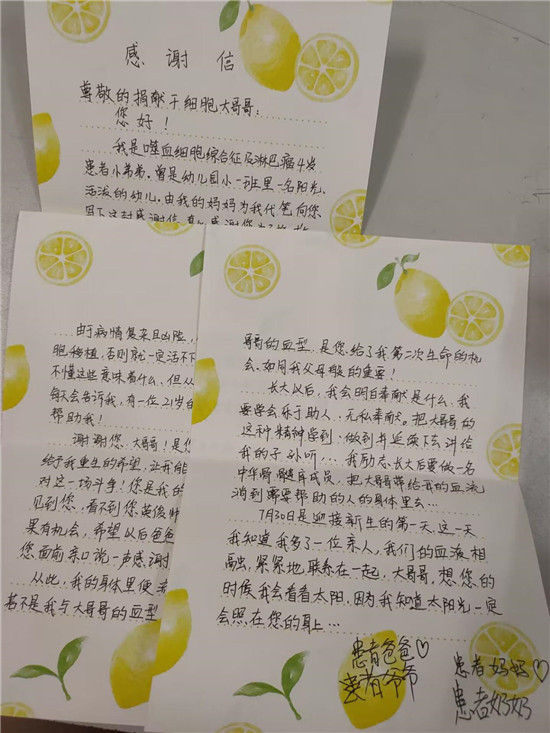 感谢信
尊敬的捐献干细胞大哥哥：
您好！
我是噬血细胞综合征及淋巴瘤4岁
患者小弟弟，曾是幼儿园小一班里一名阳光、
活泼的幼儿，由我的妈妈为我代笔向您
写下这封感谢信，
由于病情复杂且凶险，
胞移植，否则就一定活不下
不懂这些意味着什么，但从
每天会告诉我，有一位21岁的
帮助我！
谢谢您，大哥哥！是您
给予我重生的希望，让我能
对这一场斗争！您是我的
见到您，看不到您英俊帅
果有机会，希望以后爸爸
您面前亲口说一声感谢
从此，我的身体里便流
名不是我与大哥哥的血型
哥哥的血型，是您给了我第二次生命的机
会、如同我父母般的重要！
长大以后，我会明白奉献是什么，我
要学会乐于助人，无私奉献。把大哥哥的
这种精神学到、做到并延续下去，讲给
我的子孙听...，我励志，长大后要做一名
中华骨髓库成员，把大哥哥带给我的血流
淌到需要帮助的人的身体里去...
7月30日是迎接新生的第一天，这一天
我知道我多了一位亲人，我们的血液相
融，紧紧地联系在一起，大哥哥，想您的
时候我会看看太阳，因为我知道太阳光一定
会照在您的身上...
患者爸爸♡
患者爷爷
患者妈妈♡
患者奶奶